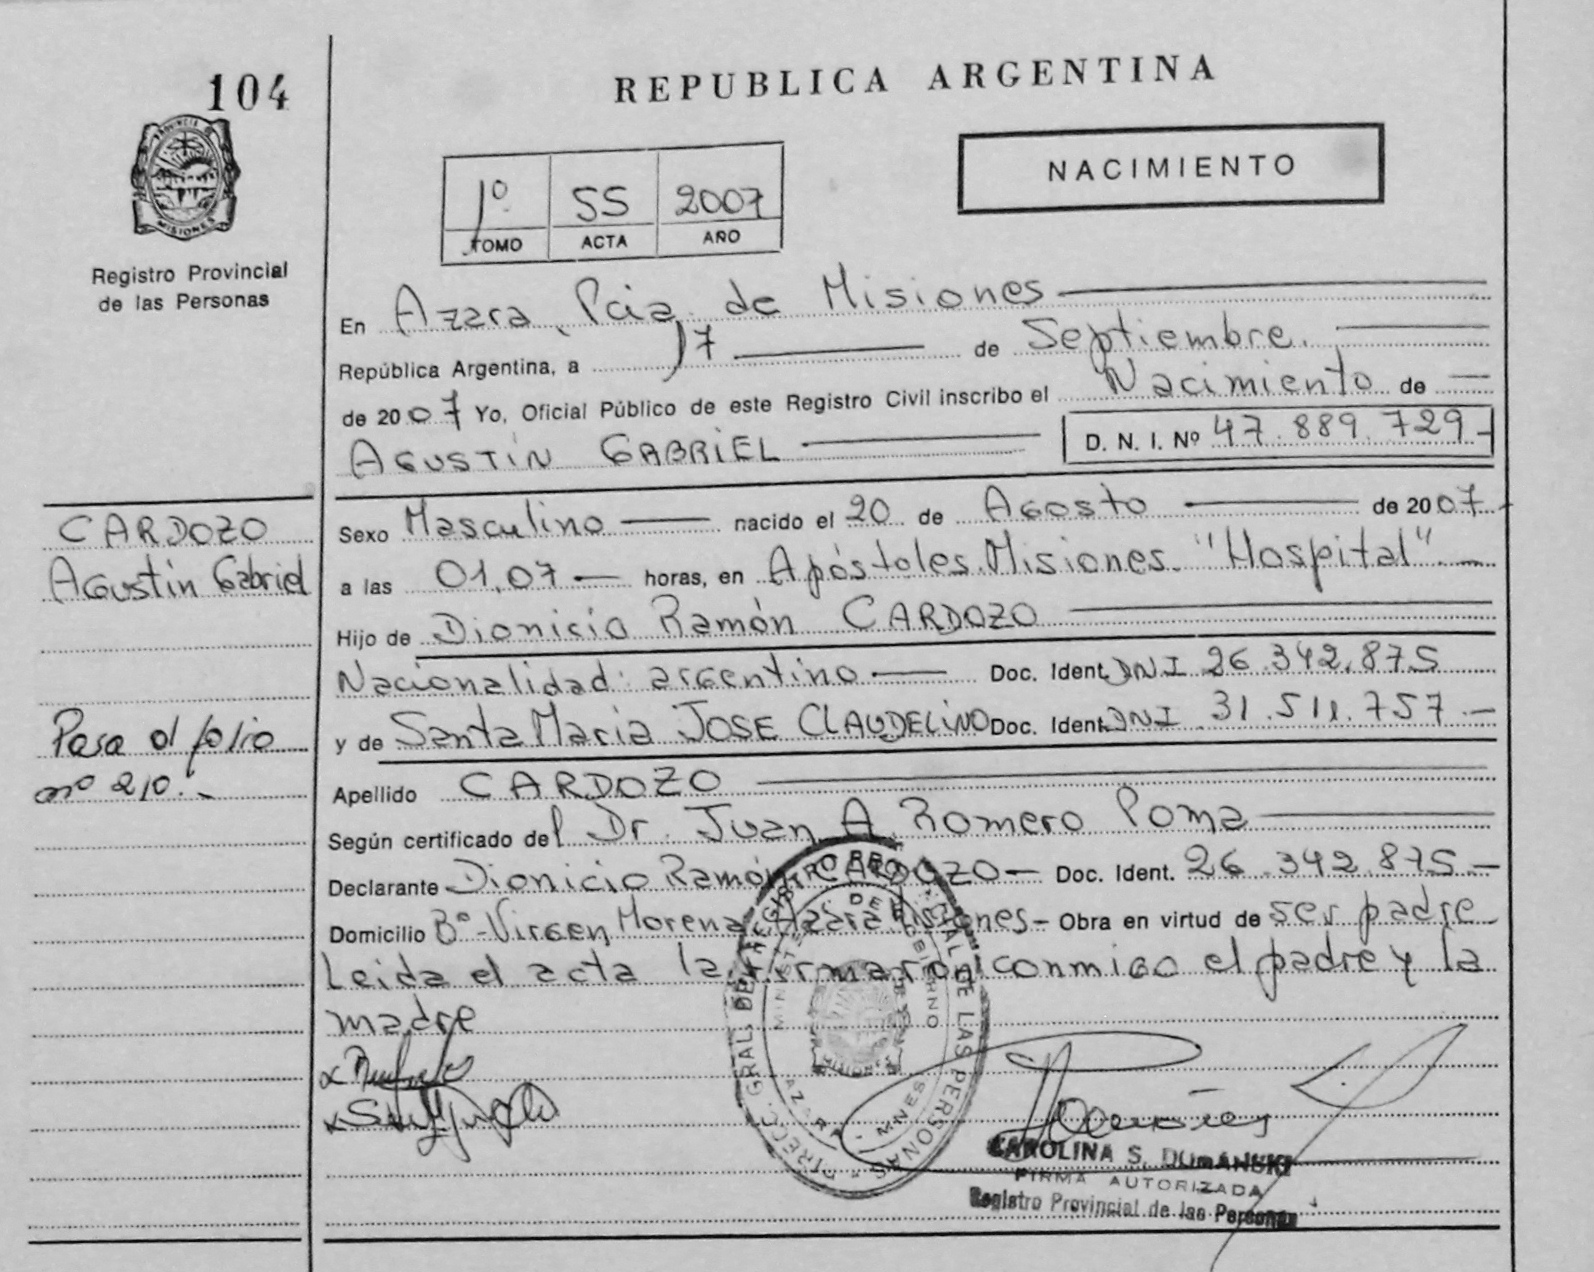 104
REPUBLICA ARGENTINA
PROVINCIA DE
MISIONES
Registro Provincial
de las Personas
1º 55 2007
TOMO ACTA AÑO
NACIMIENTO
En Azara, Pcia. de Misiones
República Argentina, a 17 de Septiembre.
de 2007 Yo, Oficial Público de este Registro Civil inscribo el Nacimiento de
AGUSTÍN GABRIEL D. N. I. Nº 47.889.729
CARDOZO
Agustín Gabriel
Sexo Masculino nacido el 20 de Agosto de 2007
a las 01,07 horas, en Apóstoles Misiones. "Hospital"
Hijo de Dionicio Ramón CARDOZO
Nacionalidad: argentino Doc. Ident. DNI 26.342.875
y de Santa Maria JOSE CLAUDELINO Doc. Ident. DNI 31.511.757
Pasa al folio
nº 210.
Apellido CARDOZO
Según certificado del Dr. Juan A. Romero Poma
Declarante Dionicio Ramón CARDOZO Doc. Ident. 26.342.875
Domicilio Bº Virgen Morena, Azara Misiones Obra en virtud de ser padre
Leida el acta la firmaron conmigo el padre y la
madre
DIRECC. GRAL. DEL REGISTRO PROVINCIAL DE LAS PERSONAS
AZARA - MNES
CAROLINA S. DUMANSKI
FIRMA AUTORIZADA
Registro Provincial de las Personas